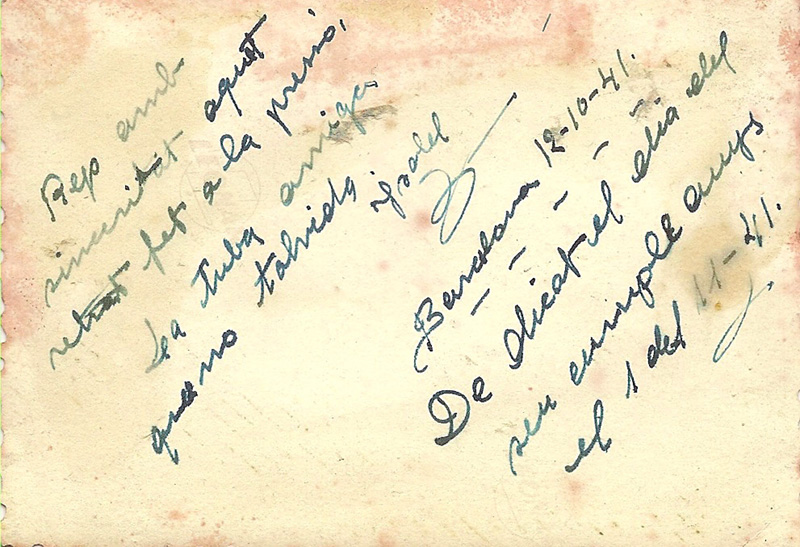 Rep amb
sinceritat aquet
retrat fet a la presió,
La tuba amiga
que no tolvida.
Isabel
Barcelona 12-10-41.
De dicat el dia del
seu cumple anys
el 1 del 11-41.